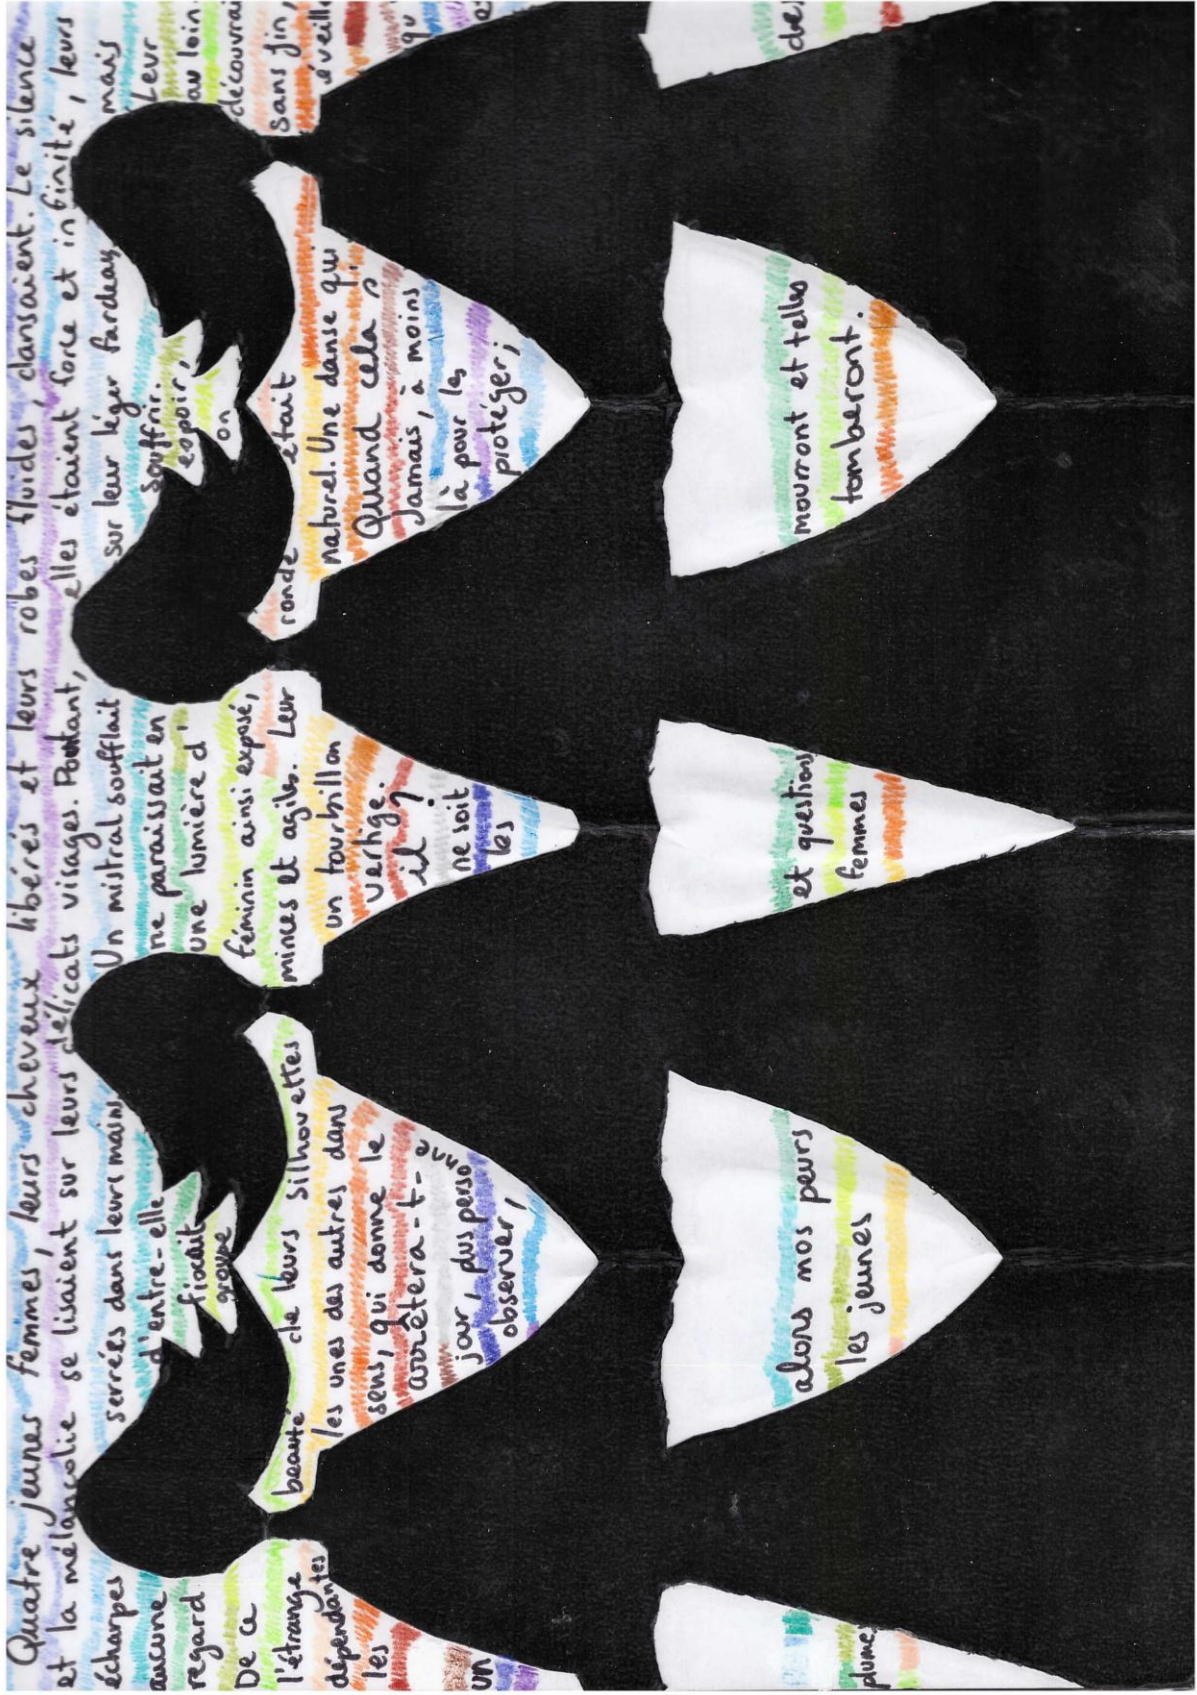 Quatre jeunes femmes, leurs cheveux libérés et leurs robes fluides, dansaient. Le silence
et la mélancolie se lisaient sur leurs délicats visages. Pourtant, elles étaient force et infinité, leurs
écharpes serrées dans leurs mains. Un mistral soufflait sur leur léger fardeau, mais
aucune d'entre-elle ne paraissait en souffrir. Leur
regard fixait une lumière d' espoir, au loin.
De ce groupe féminin ainsi exposé, on découvrai
l'étrange beauté de leurs silhouettes minces et agiles. Leur ronde était sans fin,
dépendantes les unes des autres dans un tourbillon naturel. Une danse qui éveille
les sens, qui donne le vertige. Quand cela s'
arrêtera-t-il? Jamais, à moins qu
un jour, plus personne ne soit là pour les
observer, les protéger;
alors nos peurs et questions mourront et telles des
plumes les jeunes femmes tomberont.